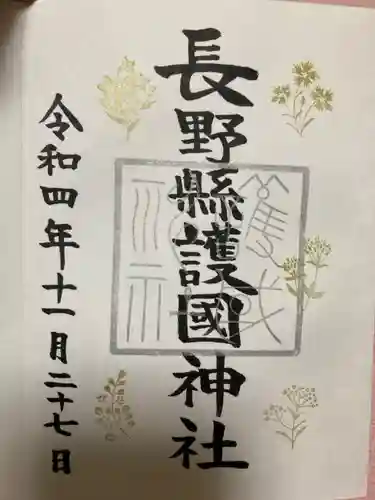 長野縣護國神社
令和四年十一月二十七日